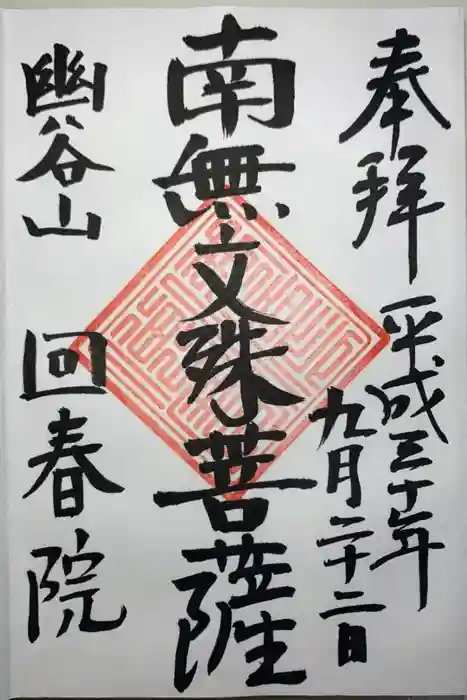 奉拝
平成三十年
九月二十二日
南無文殊菩薩
幽谷山
回春院